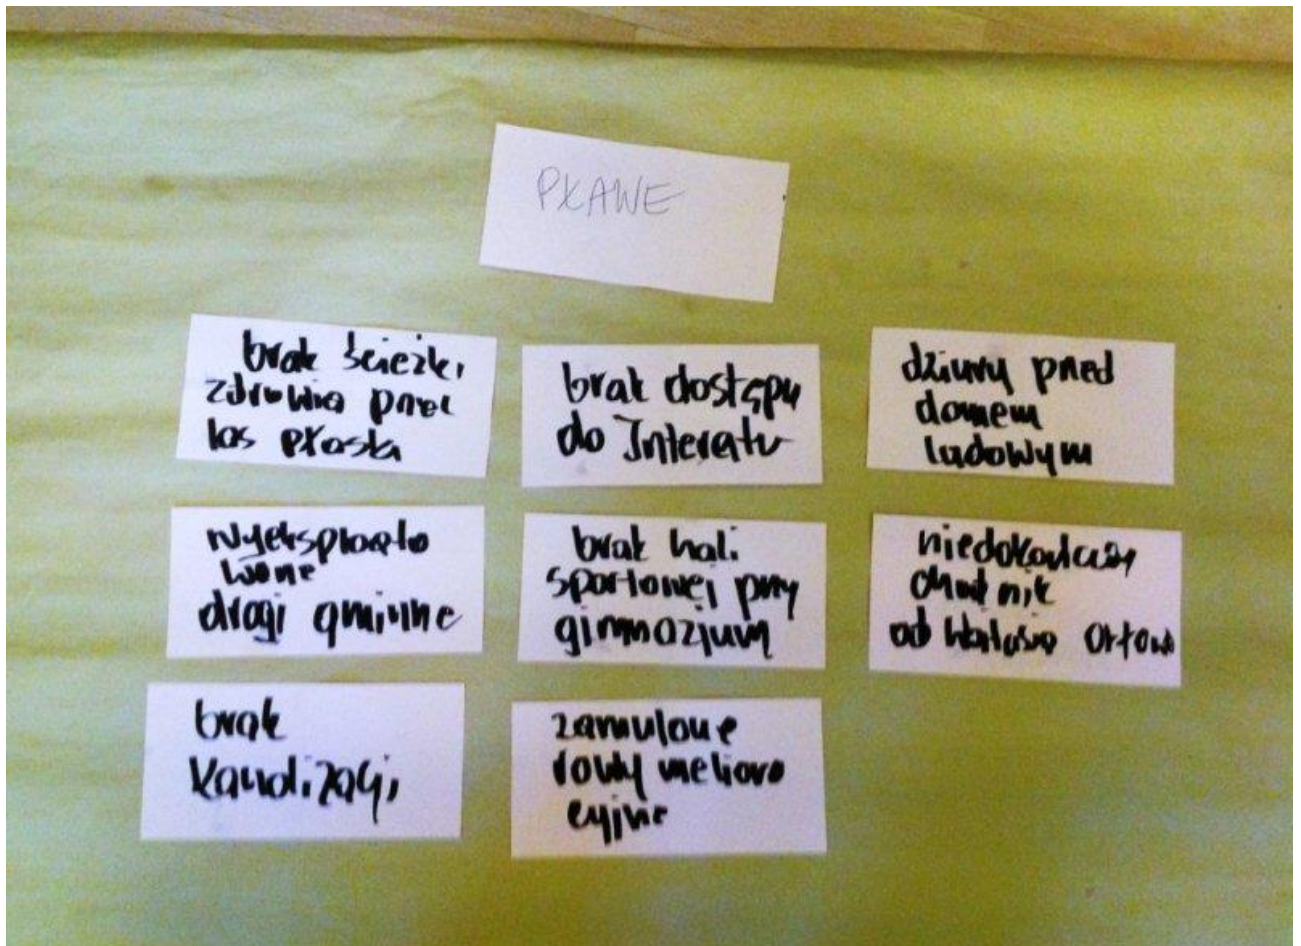 PŁAWE
brak ścieżki
zdrowia przez
las płaska
brak dostępu
do Interetu
dziury przed
domem
ludowym
wyeksploato
wane
drogi gminne
brak hali
sportowej przy
gimnazjum
niedokończony
chodnik
od
brak
kanalizacji
zamulone
rowy meliora
cyjne